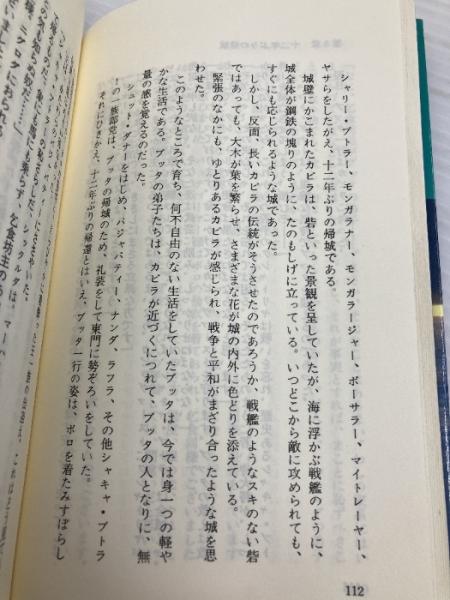 シャリー・プトラー、モンガラナー、モンガラージャー、ボーサラー、マイトレーヤー、
ヤサらをしたがえ、十二年ぶりの帰城である。
城壁にかこまれたカピラは、砦といった景観を呈していたが、海に浮かぶ戦艦のように、
城全体が鋼鉄の塊りのように、たのもしげに立っている。いつどこから敵に攻められても、
すぐにも応じられるような城であった。
しかし、反面、長いカピラの伝統がそうさせたのであろうか、戦艦のようなスキのない砦
ではあっても、大木が葉を繁らせ、さまざまな花が城の内外に色どりを添えている。
緊張のなかにも、ゆとりあるカピラが感じられ、戦争と平和がまざり合ったような城を思
わせた。
このようなところで育ち、何不自由のない生活をしていたブッタは、今では身一つの軽や
かな生活である。ブッタの弟子たちは、カピラが近づくにつれて、ブッタの人となりに、無
量の感を覚えるのだった。
シュット・ダナーをはじめ、パジャパティー、ナンダ、ラフラ、その他シャキャ・プトラ
ーの一族郎党は、ブッタの帰城のため、礼装をして東門に勢ぞろいをしていた。
それにひきかえ、十二年ぶりの帰還とはいえ、ブッタ一行の姿は、ボロを着たみすぼらし
112